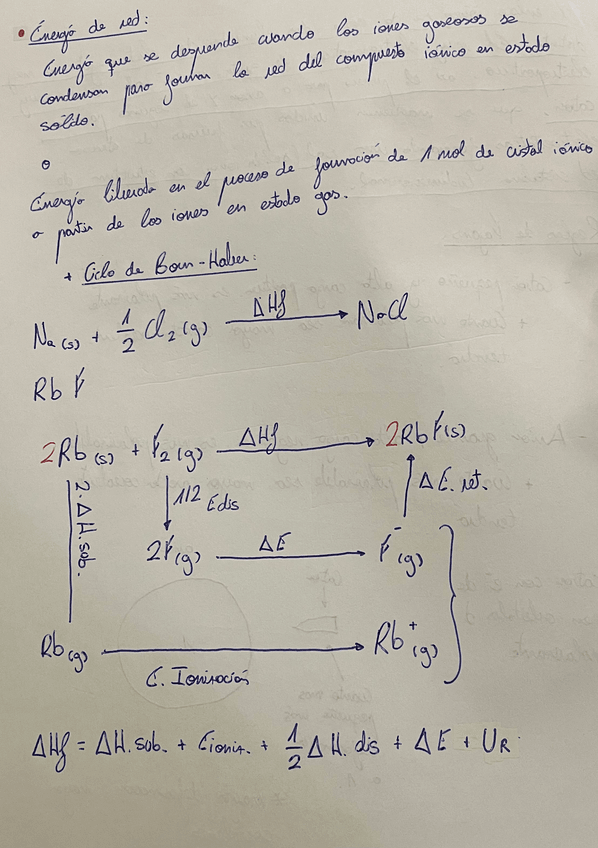 • Energía de red:
Energía que se desprende cuando los iones gaseosos se
condensan para formar la red del compuesto iónico en estado
sólido.
o
Energía liberada en el proceso de formación de 1 mol de cristal iónico
a partir de los iones en estado gas.
+ Ciclo de Born-Haber:
Na (s) + 1/2 Cl2 (g) ΔHf → NaCl
Rb F
2Rb (s) + F2 (g) ΔHf → 2RbF(s)
2·ΔH. sub.
1/2 Edis
Δ E. ret.
2F(g) ΔE → F-(g)
Rb(g) → Rb+(g)
E. Ionización
ΔHf = ΔH. sub. + Eioniz. + 1/2 ΔH. dis + ΔE + UR.